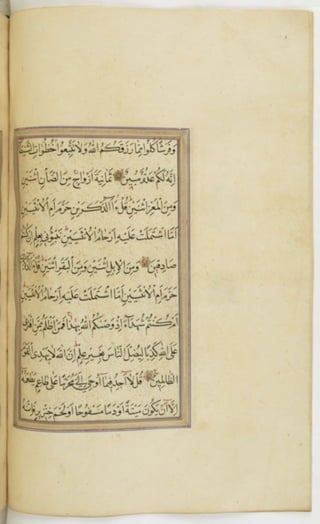 وَفَرْشًا كُلُوا مِمَّا رَزَقَكُمُ اللّٰهُ وَلَا تَتَّبِعُوا خُطُوَاتِ الشَّيْطَانِ
إِنَّهُ لَكُمْ عَدُوٌّ مُبِينٌ ثَمَانِيَةَ أَزْوَاجٍ مِنَ الضَّأْنِ اثْنَيْنِ
وَمِنَ الْمَعْزِ اثْنَيْنِ قُلْ ءَآلذَّكَرَيْنِ حَرَّمَ أَمِ الْأُنْثَيَيْنِ
أَمَّا اشْتَمَلَتْ عَلَيْهِ أَرْحَامُ الْأُنْثَيَيْنِ نَبِّئُونِي بِعِلْمٍ إِنْ كُنْتُمْ
صَادِقِينَ وَمِنَ الْإِبِلِ اثْنَيْنِ وَمِنَ الْبَقَرِ اثْنَيْنِ قُلْ ءَآلذَّكَرَيْنِ
حَرَّمَ أَمِ الْأُنْثَيَيْنِ أَمَّا اشْتَمَلَتْ عَلَيْهِ أَرْحَامُ الْأُنْثَيَيْنِ
أَمْ كُنْتُمْ شُهَدَاءَ إِذْ وَصَّاكُمُ اللّٰهُ بِهَذَا فَمَنْ أَظْلَمُ مِمَّنِ افْتَرَى
عَلَى اللّٰهِ كَذِبًا لِيُضِلَّ النَّاسَ بِغَيْرِ عِلْمٍ إِنَّ اللّٰهَ لَا يَهْدِي الْقَوْمَ
الظَّالِمِينَ قُلْ لَا أَجِدُ فِيمَا أُوحِيَ إِلَيَّ مُحَرَّمًا عَلَى طَاعِمٍ يَطْعَمُهُ
إِلَّا أَنْ يَكُونَ مَيْتَةً أَوْ دَمًا مَسْفُوحًا أَوْ لَحْمَ خِنْزِيرٍ فَإِنَّهُ